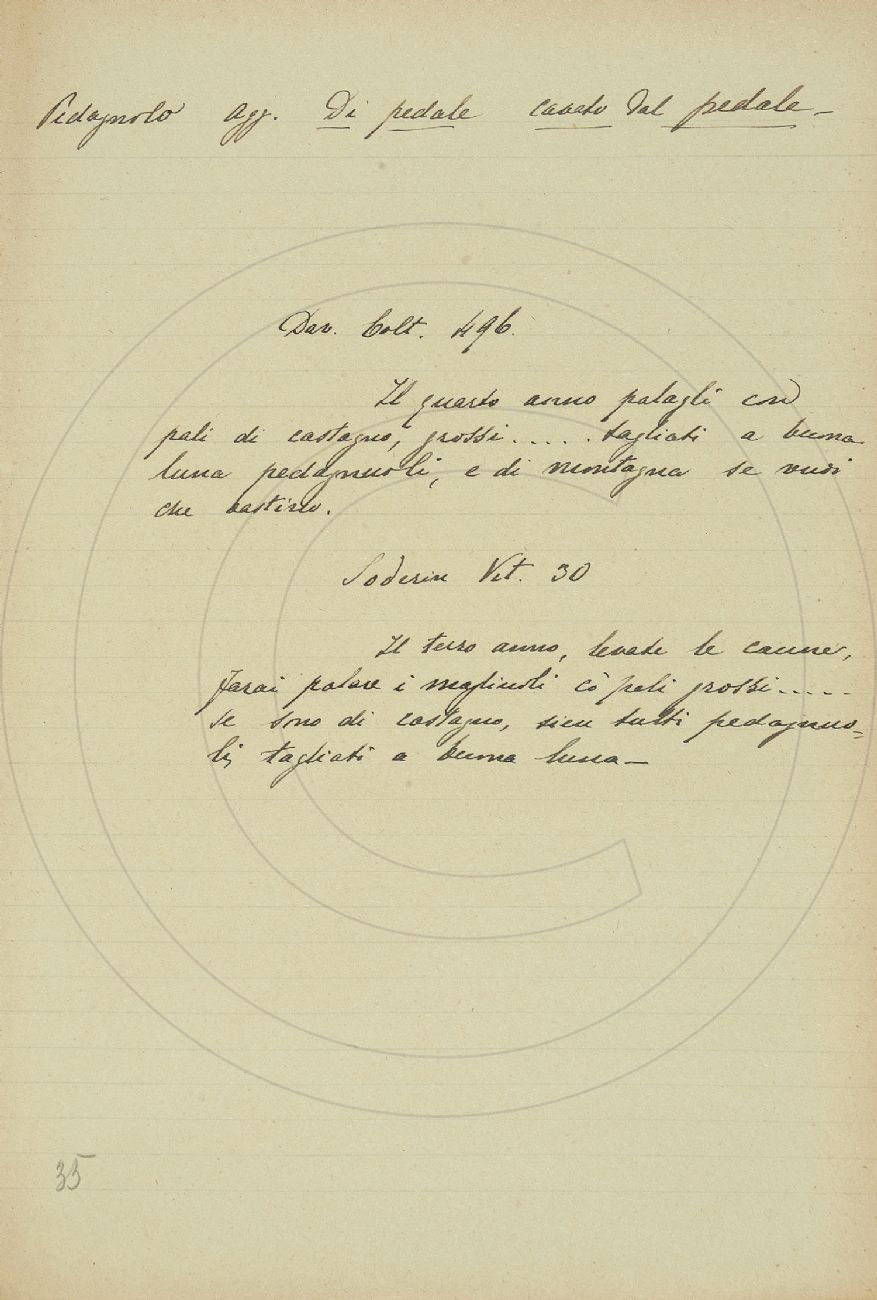 Pedagnolo agg. Di pedale cavato dal pedale –
Dav. Colt. 496.
Il quarto anno palagli con
pali di castagno, grossi..... tagliati a buona
luna pedagnuoli, e di montagna se vuoi
che bastino.
Soderin Vit. 30
Il terzo anno, levate le canne,
farai palare i magliuoli có pali grossi.....
se sono di castagno, sien tutti pedagnuo=
li, tagliati a buona luna –
35